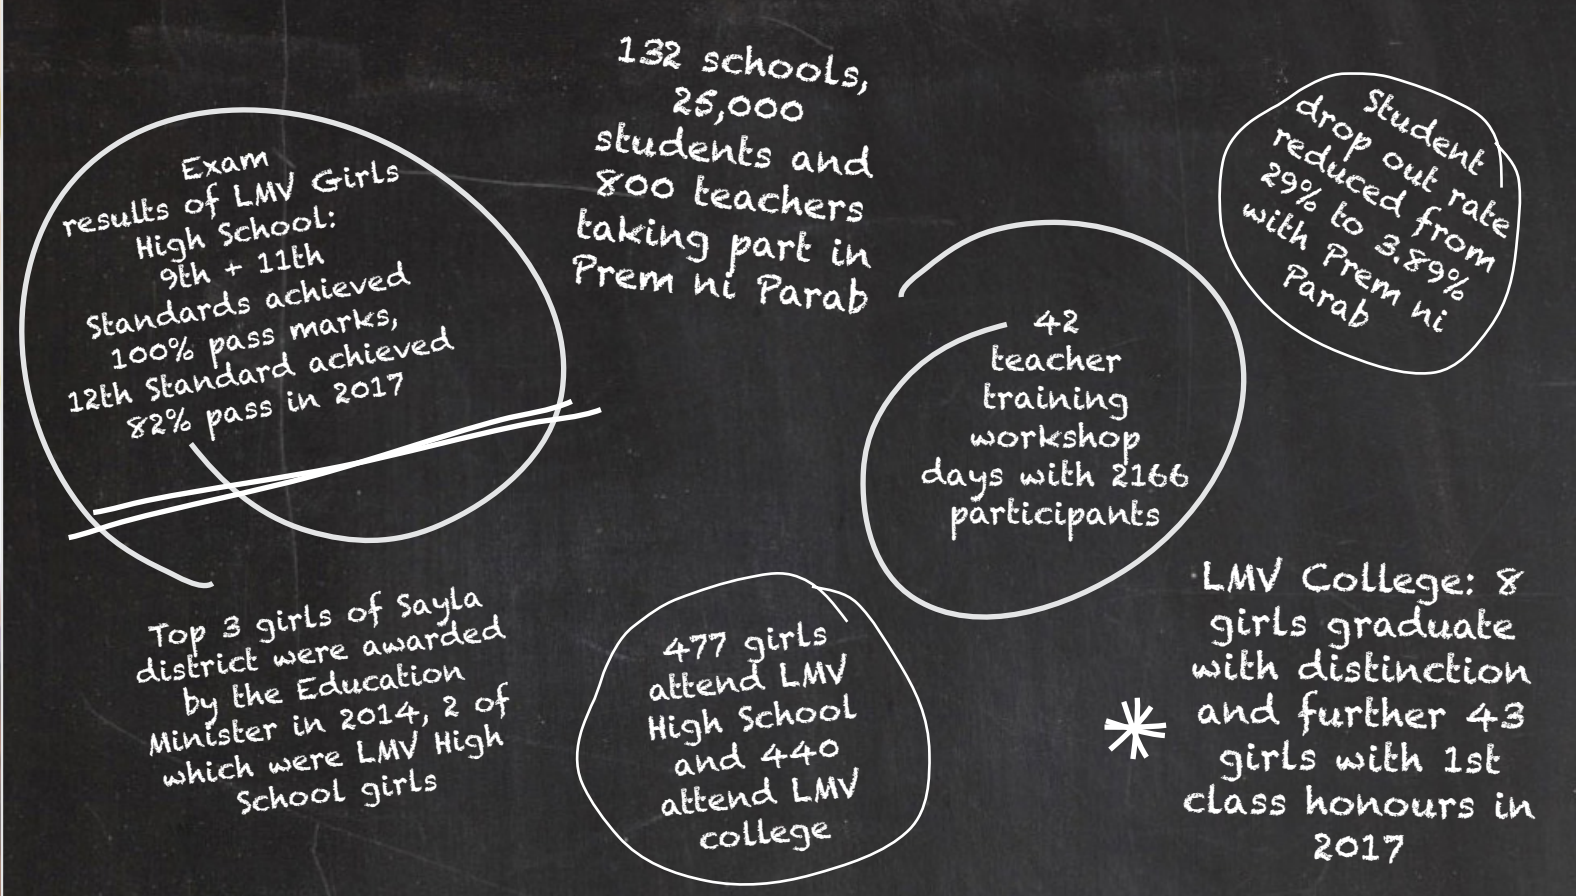 Exam
results of LMV Girls
High School:
9th + 11th
Standards achieved
100% pass marks,
12th Standard achieved
82% pass in 2017
132 schools,
25,000
students and
800 teachers
taking part in
Prem ni Parab
Student
drop out rate
reduced from
29% to 3.89%
with Prem ni
Parab
42
teacher
training
workshop
days with 2166
participants
Top 3 girls of Sayla
district were awarded
by the Education
Minister in 2014, 2 of
which were LMV High
School girls
477 girls
attend LMV
High School
and 440
attend LMV
college
LMV College: 8
girls graduate
with distinction
and further 43
girls with 1st
class honours in
2017